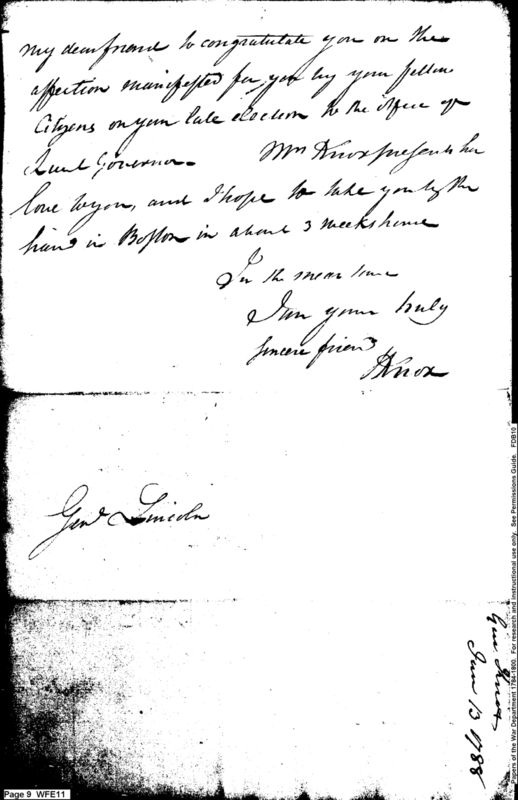 my dear friend to congratulate you on the
affection manifested for you by your fellow
Citizens on your late election to the office of
Lieut Governor. Mrs Knox presents her
love to you, and I hope to take you by the
hand in Boston in about 3 weeks hence
In the mean time
I am your truly
sincere friend
HKnox
Genl Lincoln
Genl Knox
June 13 1788
Page 9 WFE11
Papers of the War Department 1784-1800. For research and instructional use only. See Permissions Guide. FDB10